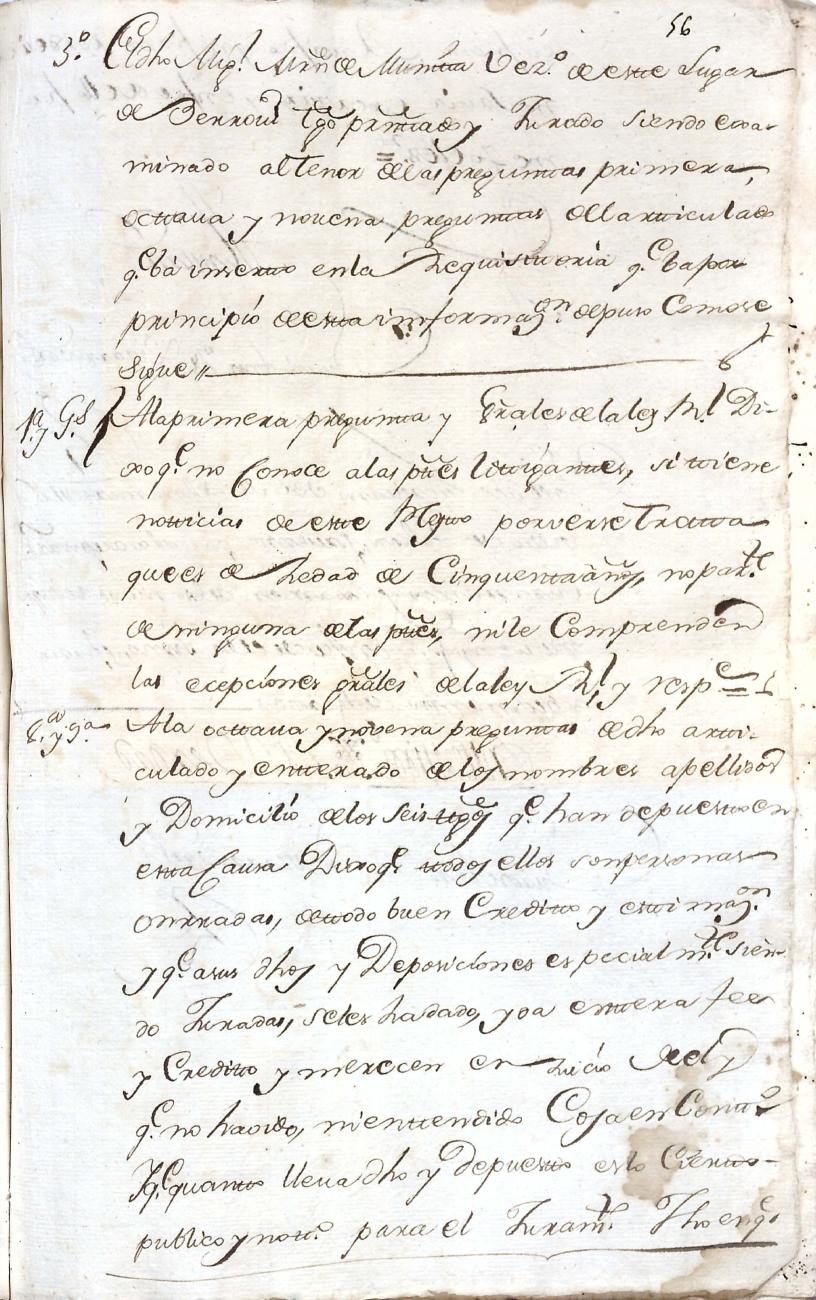 56
3.º El dho Mig.l Mrn de Munitta Vez.º de este Lugar
de Berroui tgõ prntado y Jurado siendo exa-
minado al tenor de las preguntas primera,
octtava y novena preguntas del articulado
q.e bà inserto en la Requisittoria q.e ba por
principio de esta informaz.on depuso Como se
sigue,,
1.ª y G.s A la primera pregunta y Grãles de la ley R.l Di-
xo q.e no Conoce a las ptes littigantes, si ttiene
notticias de este Pleyto por verse Tratta
que es de hedad de Cinquenta años, no par.te
de ninguna de las ptes, ni le Comprenden
las ecepciones grãles de la ley R.l y resp.e =
8.ª y 9.ª A la octtava y novena preguntas de dho artti-
culado y entterado de los nombres apellidos
y Domicilio de los seis ttgõs q.e han depuesto en
esta Causa Dixo q.e ttodos ellos son personas
onrradas, de ttodo buen Creditto y esttimaz.on
y q.e a sus dhos y Deposiciones especialm.te sien-
do Juradas, se les ha dado, y da enttera fee
y Creditto y merecen en Juicio de el y
q.e no ha oido, ni enttendido Cosa en Conttr.º
Y q.e quanto lleva dho y depuesto es lo Cierto
publico y nott.º para el Juram.to Fho en q.e